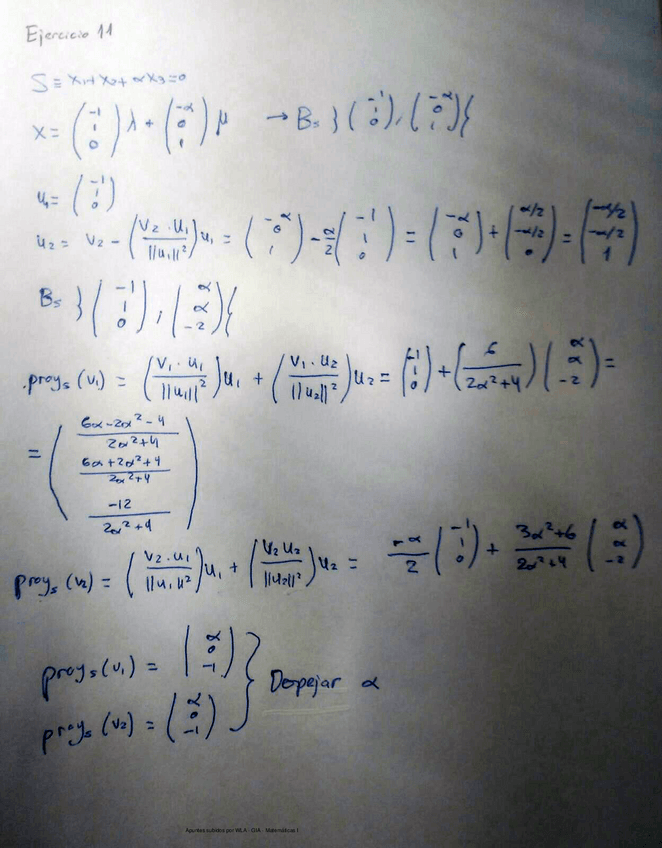 Ejercicio 11
S ≡ x₁+x₂+αx₃=0
x = (-1 1 0) λ + (-α 0 1) μ → Bs }(-1 1 0), (-α 0 1){
u₁ = (-1 1 0)
u₂ = v₂ - (v₂·u₁/||u₁||²)u₁ = (-α 0 1) - α/2 (-1 1 0) = (-α 0 1) + (α/2 -α/2 0) = (-α/2 -α/2 1)
Bs }(-1 1 0), (α α -2){
.proys (v₁) = (v₁·u₁/||u₁||²)u₁ + (v₁·u₂/||u₂||²)u₂ = (-1 1 0) + (6/2α²+4)(α α -2) =
= (6α-2α²-4/2α²+4 6α+2α²+4/2α²+4 -12/2α²+4)
proys (v₂) = (v₂·u₁/||u₁||²)u₁ + (v₂ u₂/||u₂||²)u₂ = -α/2 (-1 1 0) + 3α²+6/2α²+4 (α α -2)
proys (v₁) = (α 0 -1)
proys (v₂) = (α 0 -1)
} Despejar α
Apuntes subidos por WLA - GIA - Matemáticas I